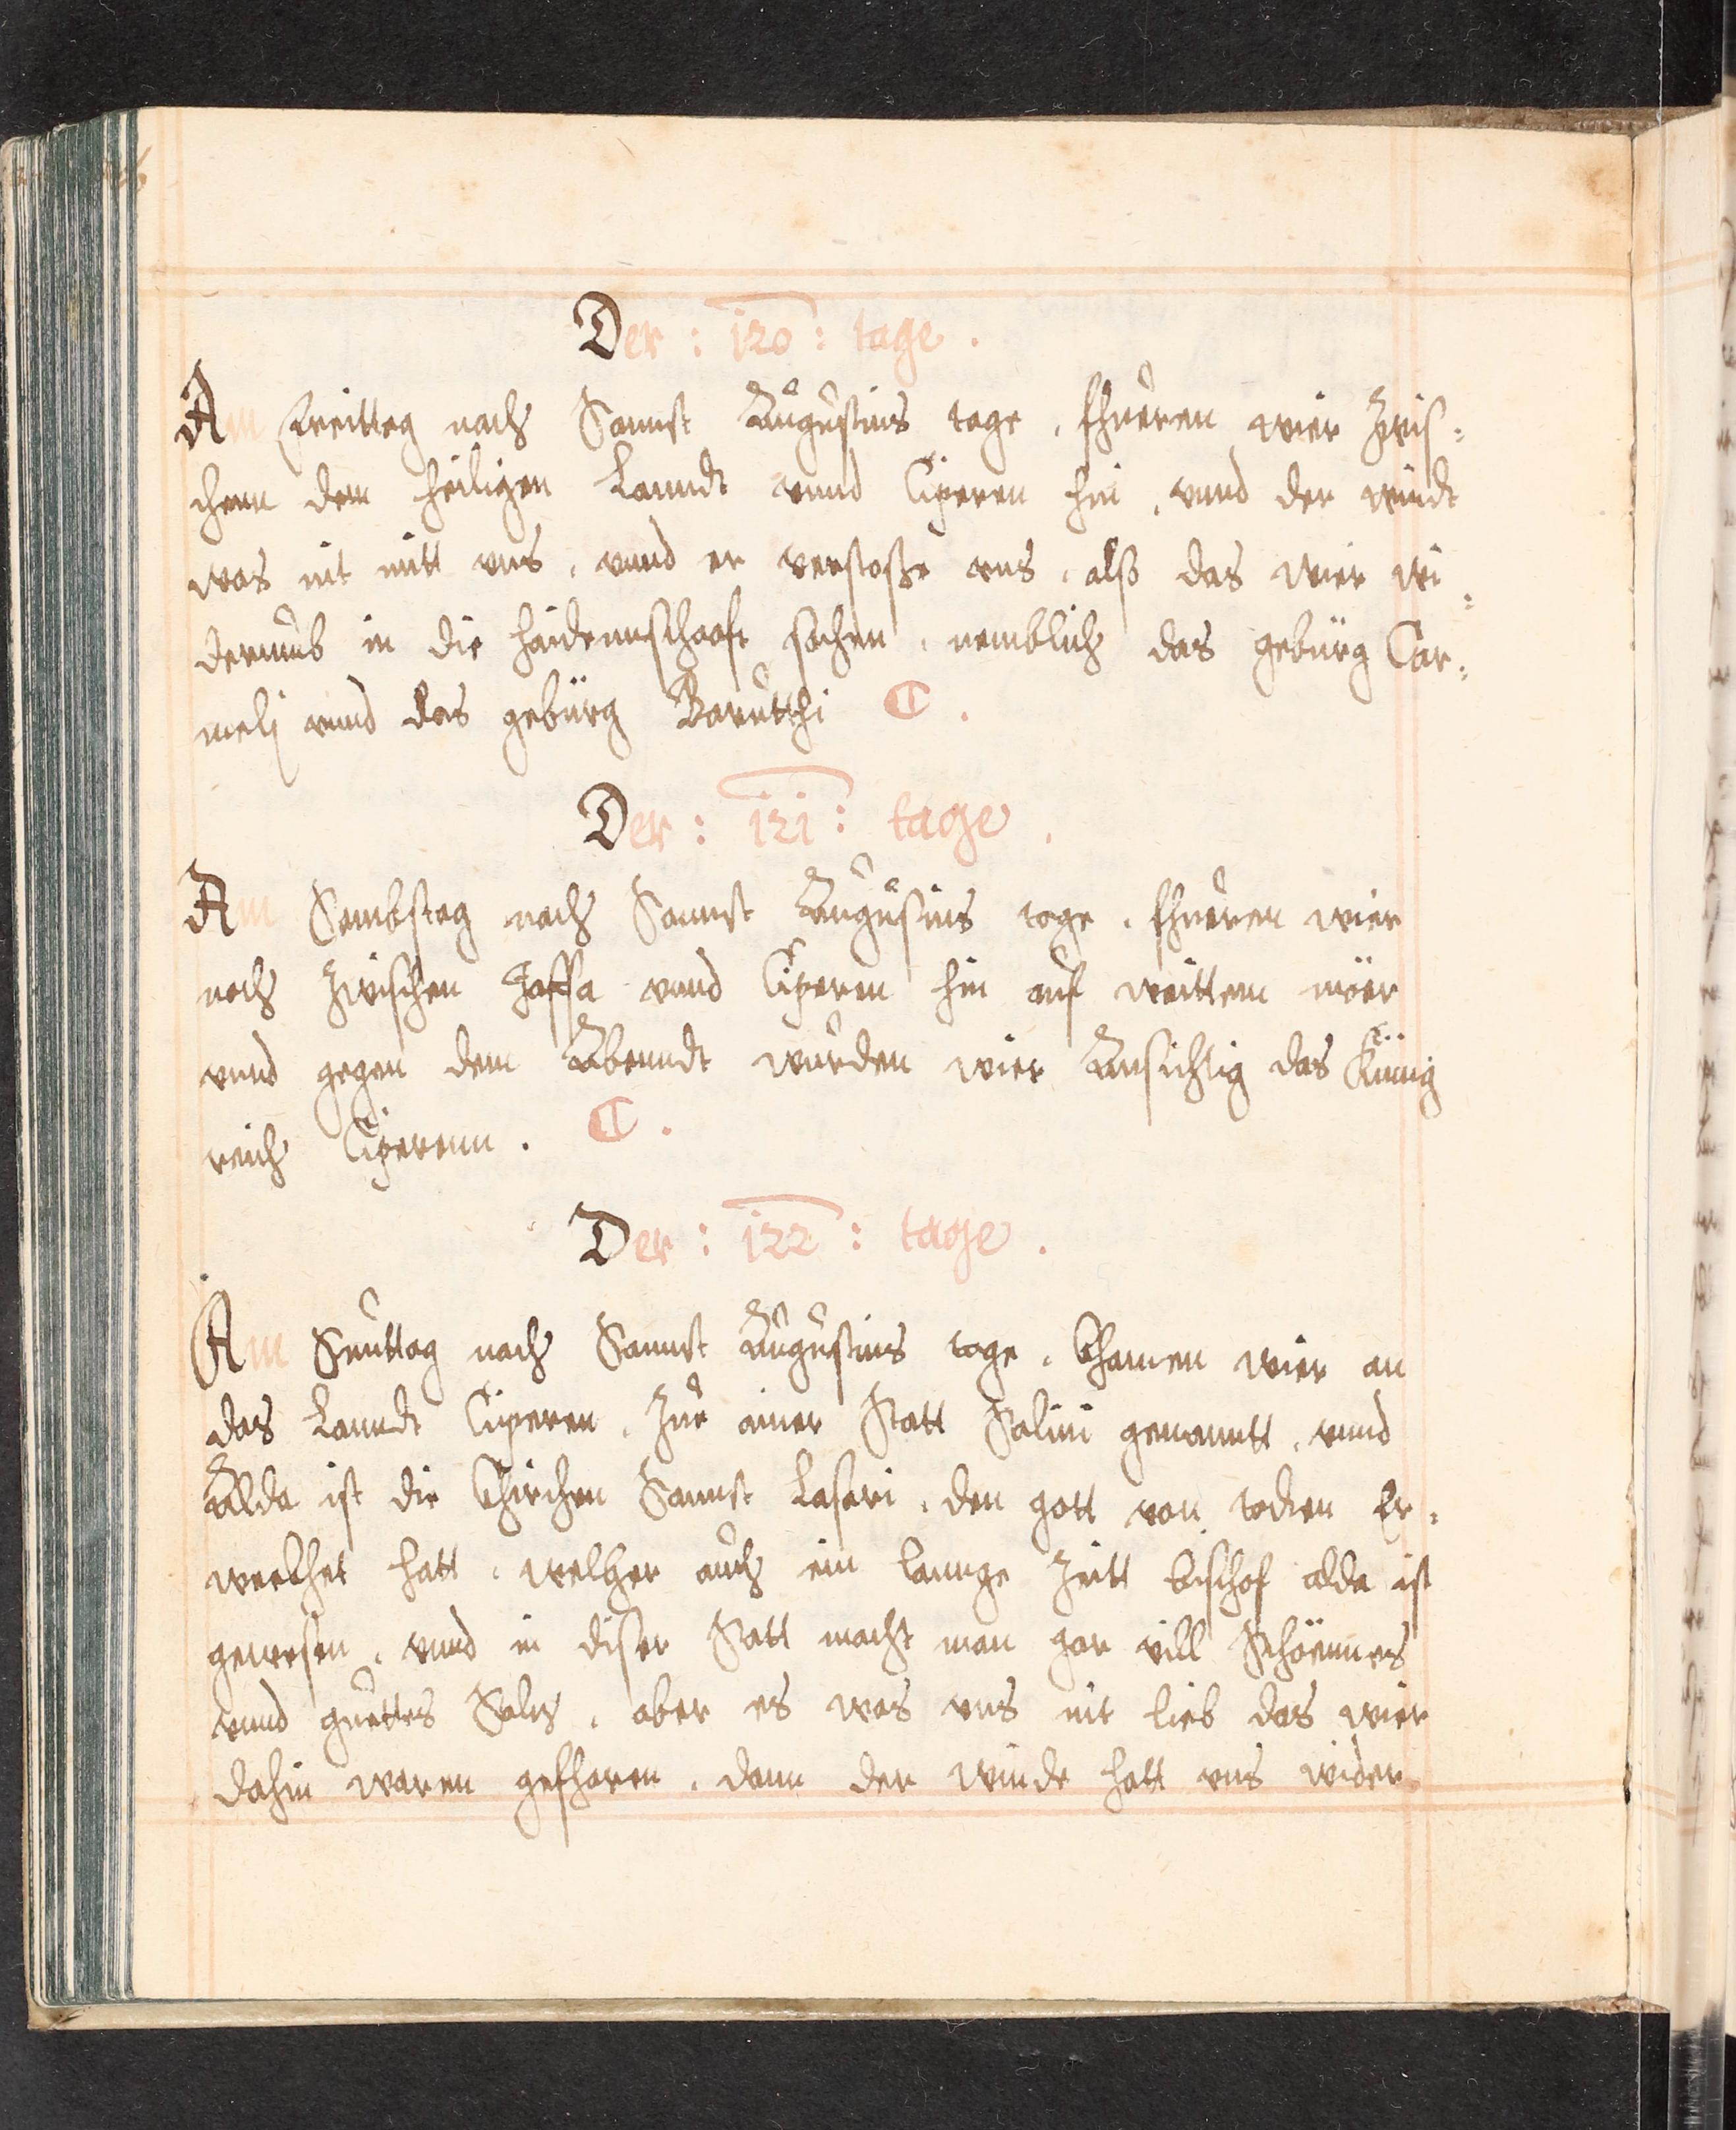 Der : 120 : tage .
Am Freittag nach Sannst Augustins tage . fhueren wier Zwis=
chenn dem heiligen Lanndt vnnd Ciperen hin . vnnd der windt
was nit mitt vns . vnnd er verstosze vns . alsz das wier wi=
dermub in die haidennschaaft sachen . nemblich das gebürg Car=
melj vnnd das gebürg Barutthi C .
Der : 121 : tage .
Am Sambstag nach Sannst Augustins tage . fhueren wier
noch Zwischen Jaffa vnnd Ciperen hin auf weittem möer
vnnd gegen dem Abenndt wurden wier Ansichtig das Künig
reich Ciperenn . C .
Der : 122 : tage .
Am Sunttag nach Sannst Augustins tage . Chamen wier an
das Lanndt Ciperen . Zue ainer Statt Salini genanntt . vnnd
Alda ist die Chirchen Sannst Lasari . den gott von todten Er=
weckhet hatt . welher auch ein lannge Zeitt bischof alda ist
gewesen . vnnd in diser Statt macht man gar vill Schöennes
vnnd guettes Saltz . aber es was vns nit lieb das wier
dahin waren gefharen . dann der winde hatt vns wider